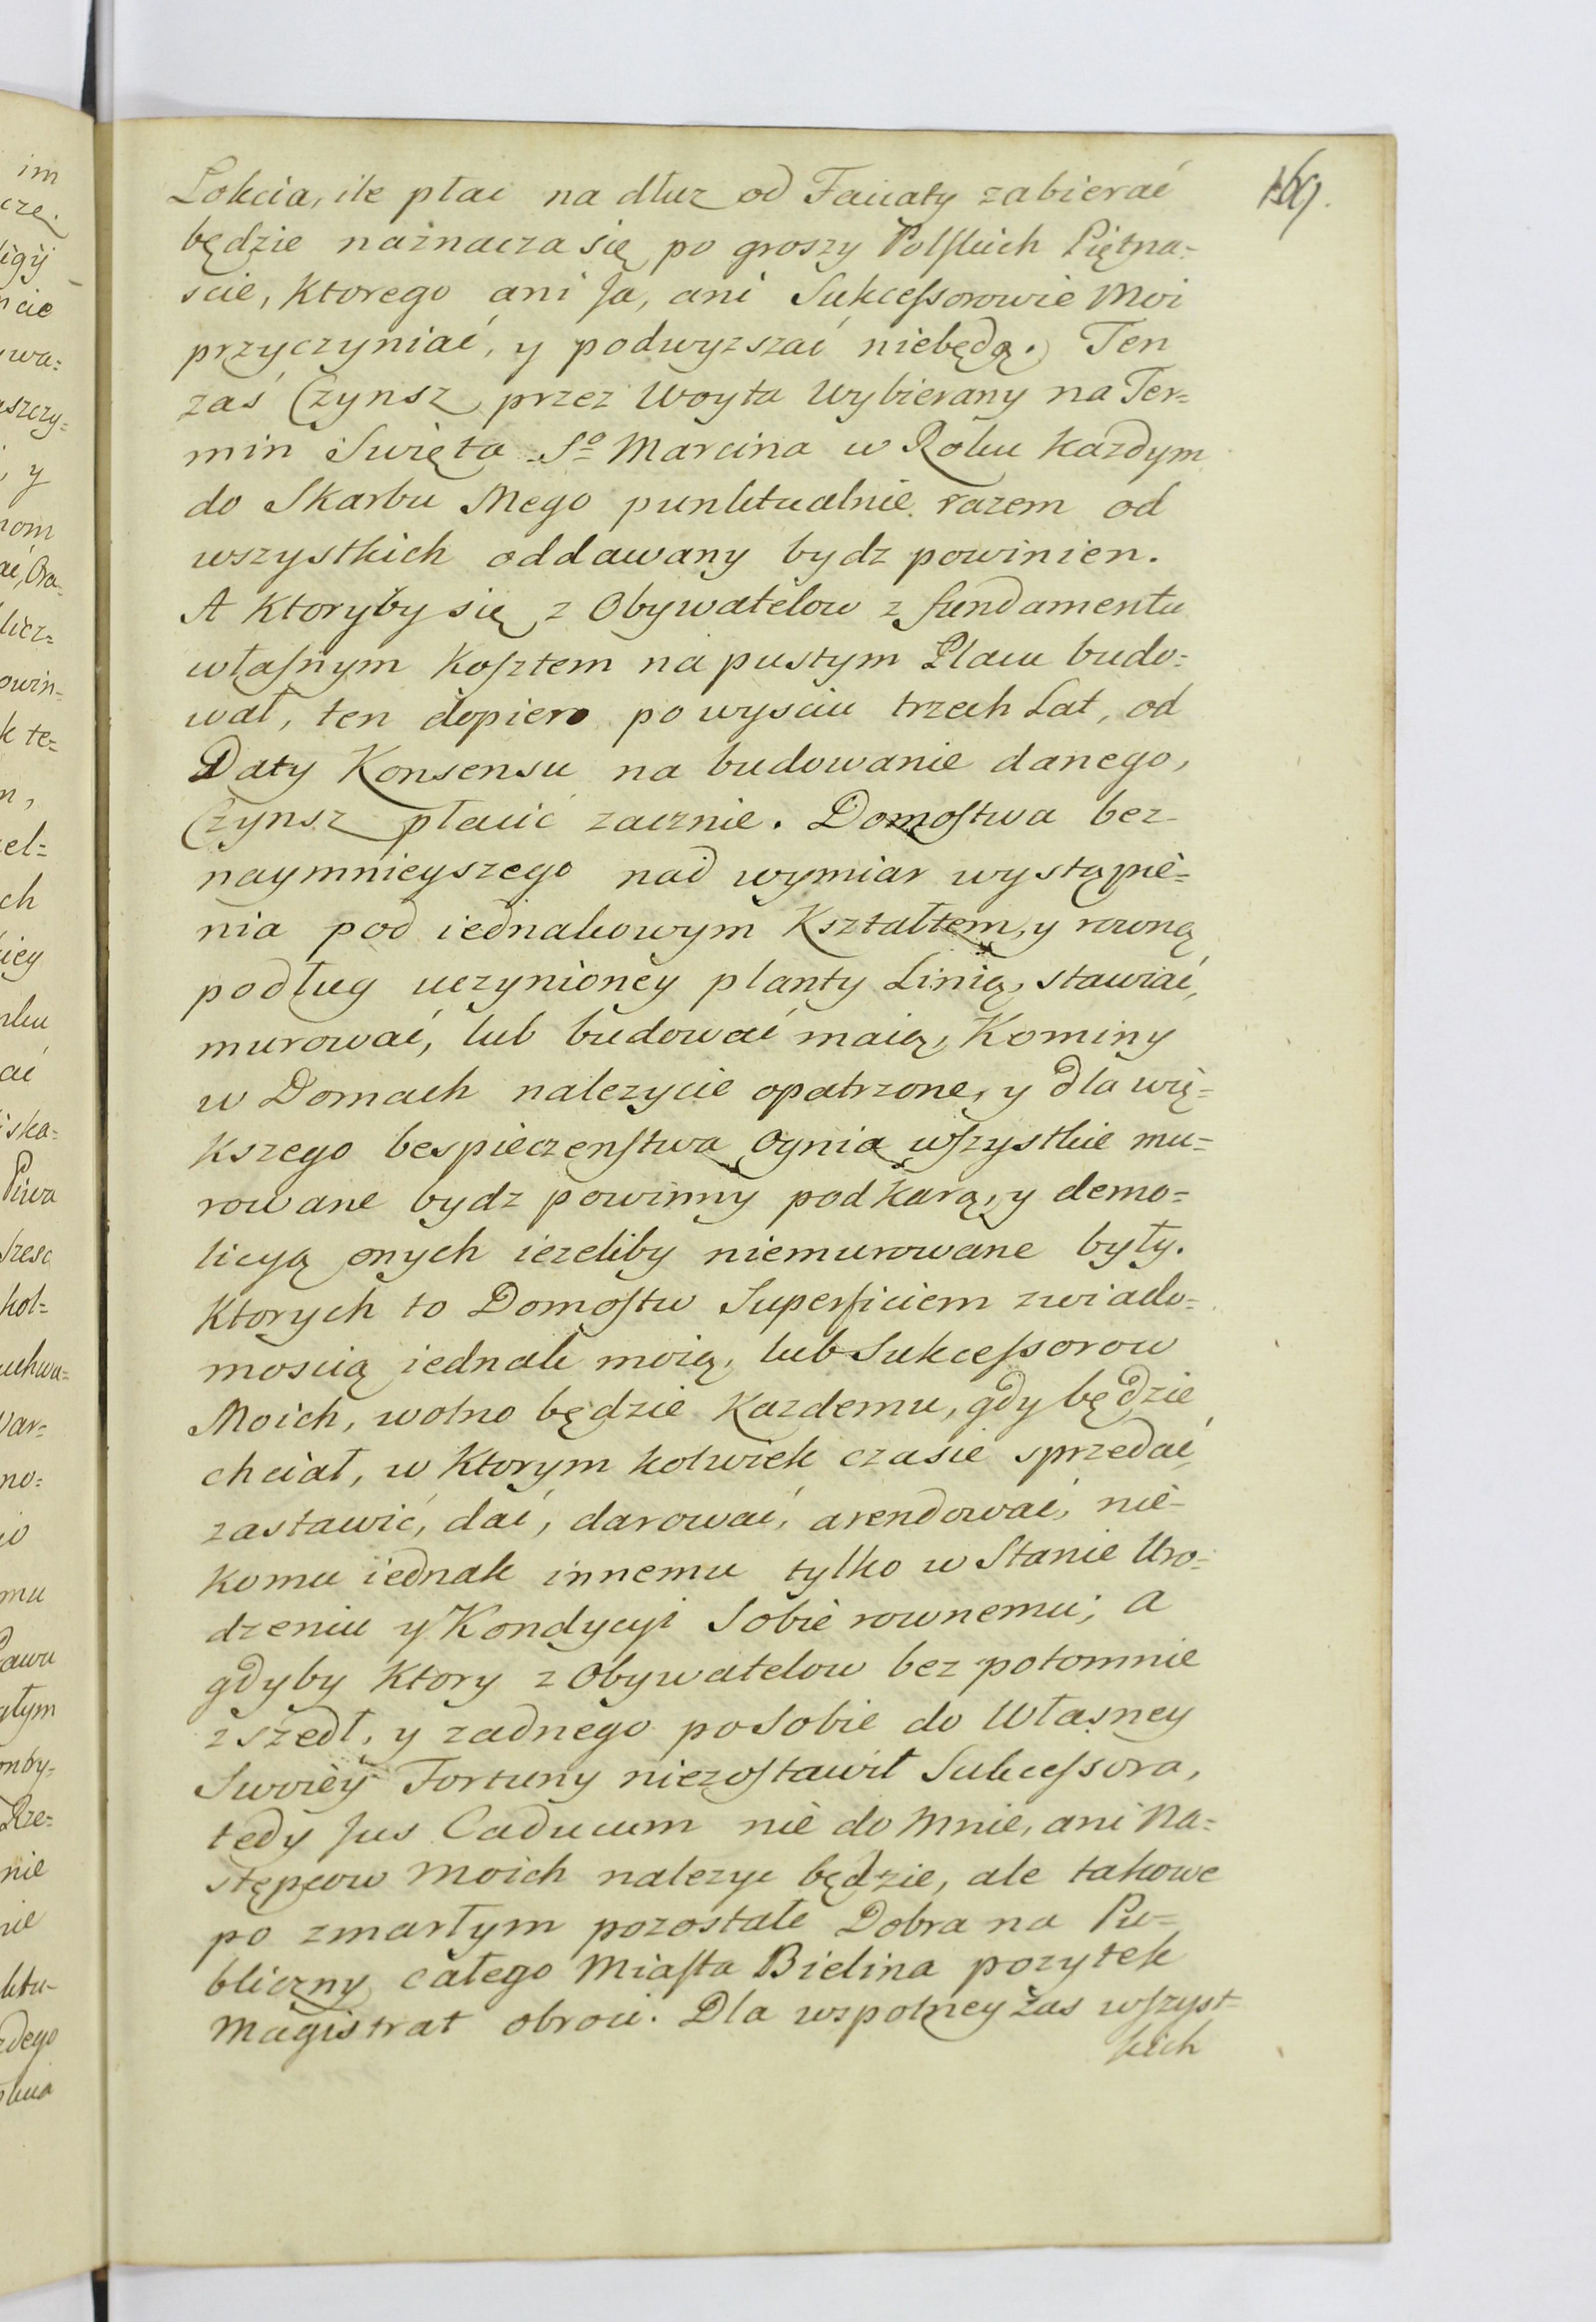 169.
Lokcia, ile plac na dluz od Faciaty zabierać
będzie naznacza się po groszy Polskich Piętna=
scie, Ktorego ani Ja, ani Sukcessorowie Moi
przyczyniać, y podwyzszać niebędą. Ten
zaś Czynsz przez Woyta Wybierany na Ter=
min Swięta So Marcina w Roku Kazdym
do Skarbu Mego punktualnie razem od
wszystkich oddawany bydz powinien.
A Ktoryby się z Obywatelow z fundamentu
własnym Kosztem na pustym Placu budo=
wał, ten dopiero po wysciu trzech Lat, od
Daty Konsensu na budowanie danego,
Czynsz płacić zacznie. Domostwa bez
naymnieyszego nad wymiar wystąpie=
nia pod iednakowym Kształtem, y rowną
podług uczynioney planty Linią, stawiać,
murować, lub budować maią, Kominy
w Domach nalezycie opatrzone, y dla wię=
Kszego bespieczenstwa Ognia wszystkie mu=
rowane bydz powinny pod Karą, y demo=
licyą onych iezeliby niemurowane były.
Ktorych to Domostw Superficiem zwiado=
moscią iednak moią, lub Sukcessorow
Moich, wolno będzie Kazdemu, gdy będzie
chciał, w Ktorym kolwiek czasie sprzedać,
zastawić, dać, darować, arendować, nie=
Komu iednak innemu tylko w Stanie Uro=
dzeniu y Kondycyi Sobie rownemu; a
gdyby Ktory z Obywatelow bez potomnie
zszedł, y zadnego po Sobie do Własney
Swoiey Fortuny niezostawił Sukcessora,
tedy Jus Caducum nie do Mnie, ani Na=
stępcow Moich nalezyc będzie, ale takowe
po zmarłym pozostałe Dobra na Pu=
bliczny całego Miasta Bielina pozytek
Magistrat obroci. Dla wspolney zas wszyst=
kich
im
czę.
ligij
ncie
wa=
uszczy=
, y
nom
ać, Ora=
licz=
owin=
k te=
n,
el=
ch
iey
ać
iska=
Piwa
kol=
uchwa=
War=
no=
mu
Prawu
ałym
Rze=
nie
nie
ktu=
zdego